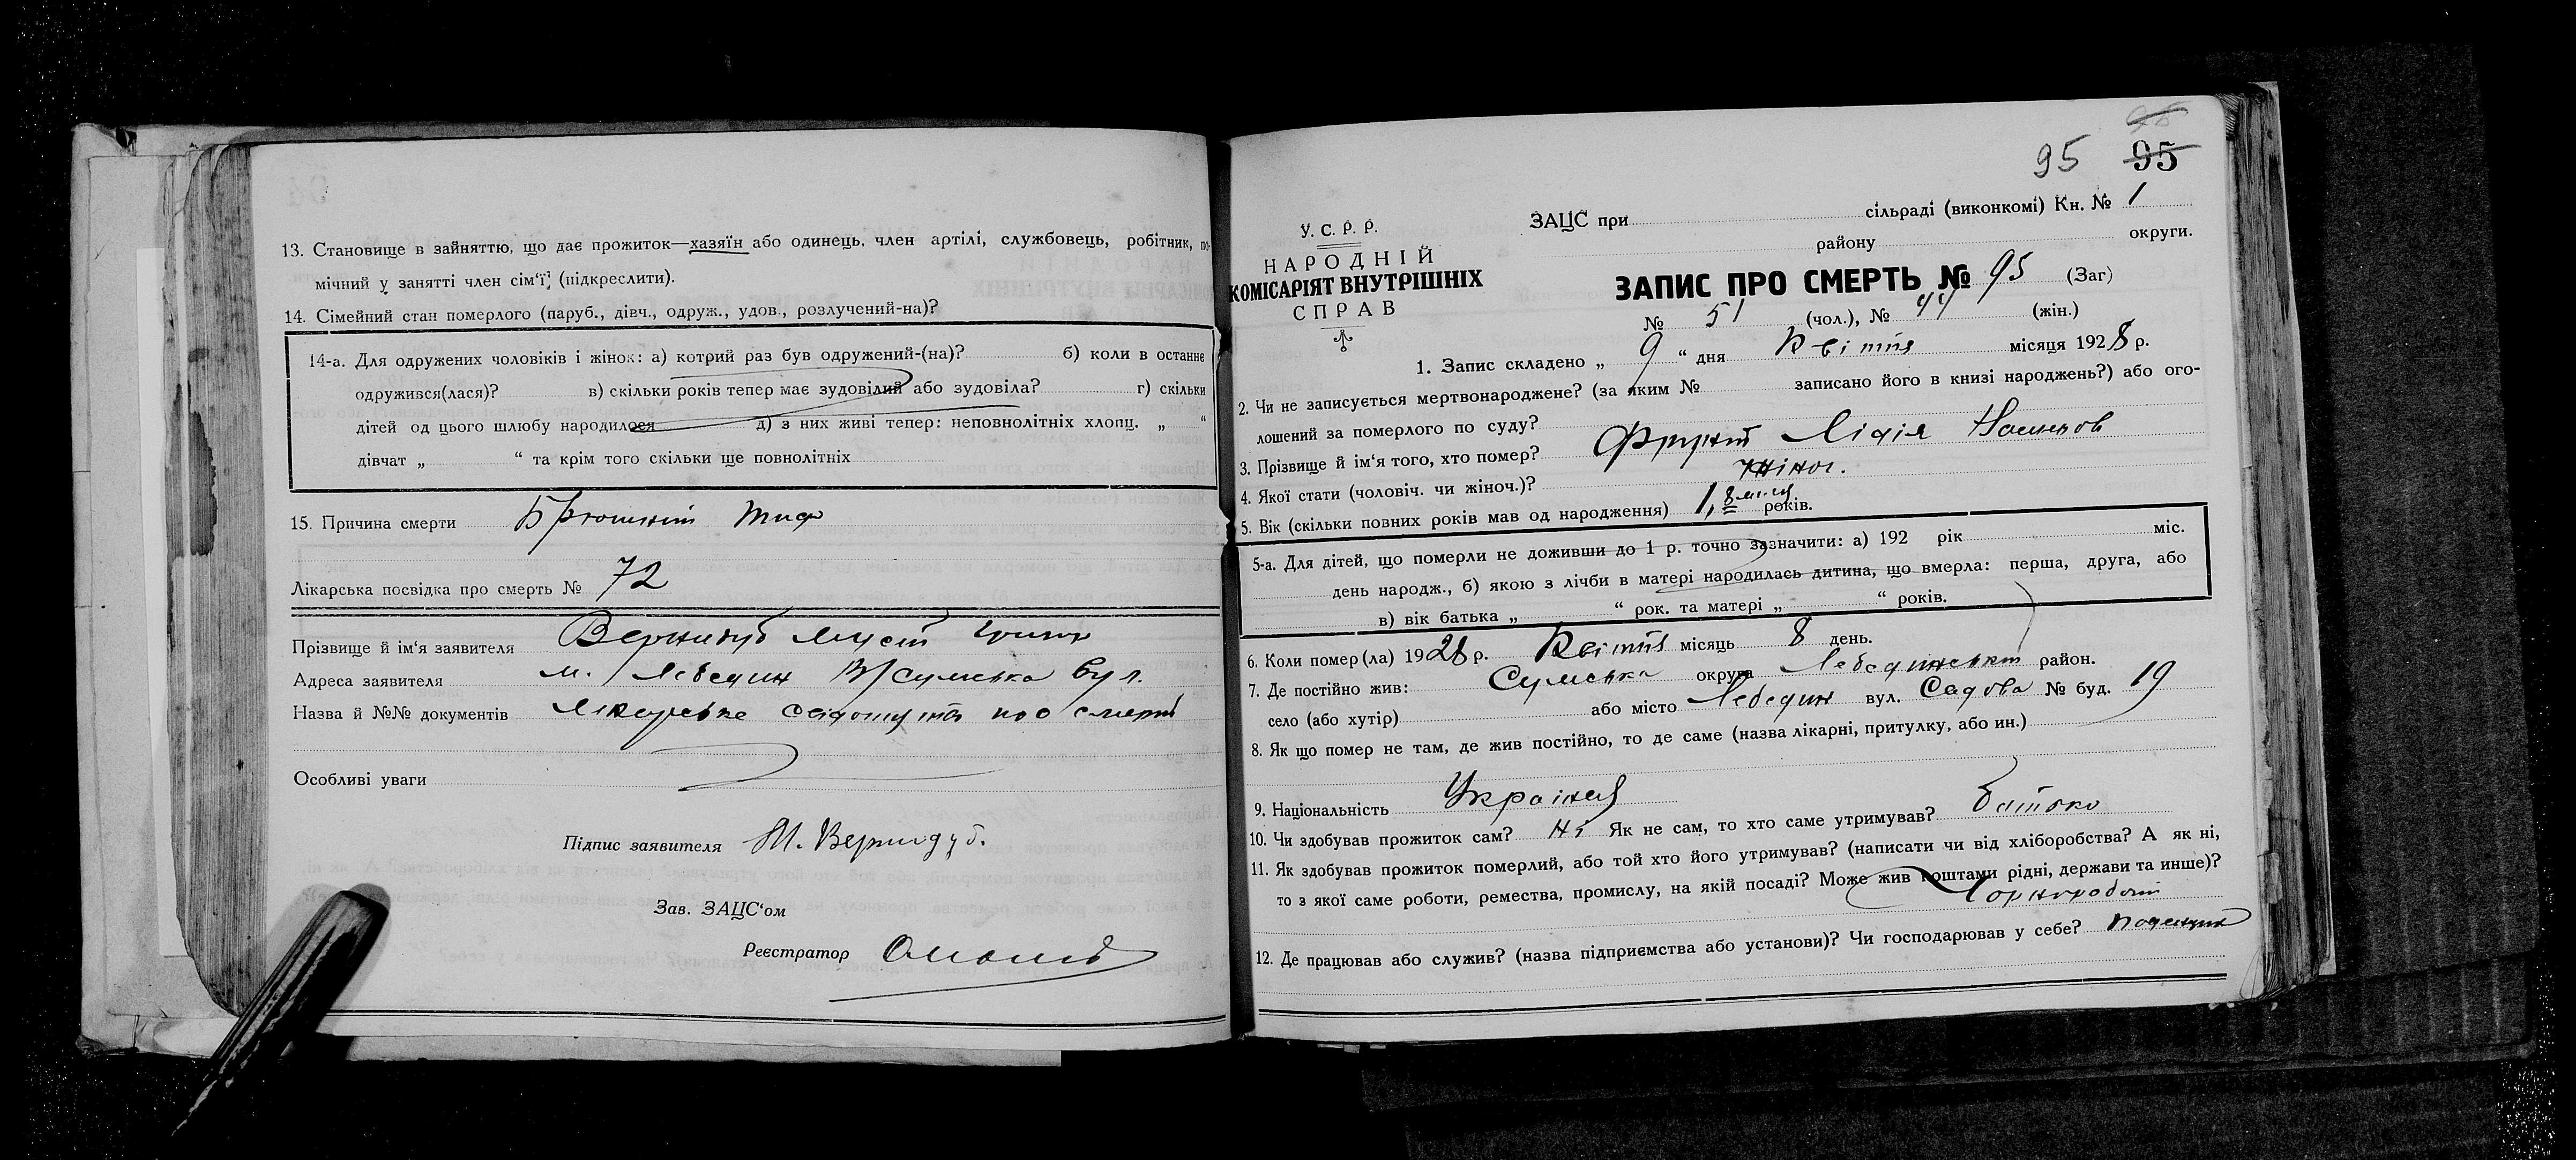 13. Становище в зайняттю, що дає прожиток—хазяїн або одинець, член артілі, службовець, робітник, по-
мічний у занятті член сім‘ї (підкреслити).
14. Сімейний стан померлого (паруб., дівч., одруж., удов., розлучений-на)?
14-а. Для одружених чоловіків і жінок: а) котрий раз був одружений-(на)? б) коли в останнє
одружився(лася)? в) скільки років тепер має зудовілий або зудовіла? г) скільки
дітей од цього шлюбу народилося д) з них живі тепер: неповнолітніх хлопц. „ “
дівчат „ “ та крім того скільки ще повнолітніх
15. Причина смерти Брюшний тиф
Лікарська посвідка про смерть № 72
Прізвище й ім‘я заявителя Вернидуб
Адреса заявителя м. Лебедин В/Сумська вул.
Назва й №№ документів Лікарське про смерть
Особливі уваги
Підпис заявителя Вернидуб.
Зав. ЗАЦС‘ом
Реєстратор
95 95
У. С. Р. Р.
НАРОДНІЙ
КОМІСАРІЯТ ВНУТРІШНІХ
СПРАВ
ЗАЦС при сільраді (виконкомі) Кн. № 1
району округи.
ЗАПИС ПРО СМЕРТЬ № 95 (Заг)
№ 51 (чол.), № 44 (жін.)
1. Запис складено „ 9 “ дня Квітня місяця 1928 р.
2. Чи не записується мертвонароджене? (за яким № записано його в книзі народжень?) або ого-
лошений за померлого по суду?
3. Прізвище й ім‘я того, хто помер? Лідія
4. Якої стати (чоловіч. чи жіноч.)? жіноч.
5. Вік (скільки повних років мав од народження) 1, 8 місяц років.
5-а. Для дітей, що померли не доживши до 1 р. точно зазначити: а) 192 рік міс.
день народж., б) якою з лічби в матері народилась дитина, що вмерла: перша, друга, або
в) вік батька „ “ рок. та матері „ “ років.
6. Коли помер(ла) 1928 р. Квітня місяць 8 день.
7. Де постійно жив: Сумська округа Лебединський район.
село (або хутір) або місто Лебедин вул. Садова № буд. 19
8. Як що помер не там, де жив постійно, то де саме (назва лікарні, притулку, або ин.)
9. Національність
10. Чи здобував прожиток сам? Ні Як не сам, то хто саме утримував? батько
11. Як здобував прожиток померлий, або той хто його утримував? (написати чи від хліборобства? А як ні,
то з якої саме роботи, ремества, промислу, на якій посаді? Може жив коштами рідні, держави та инше)?
12. Де працював або служив? (назва підприємства або установи)? Чи господарював у себе?